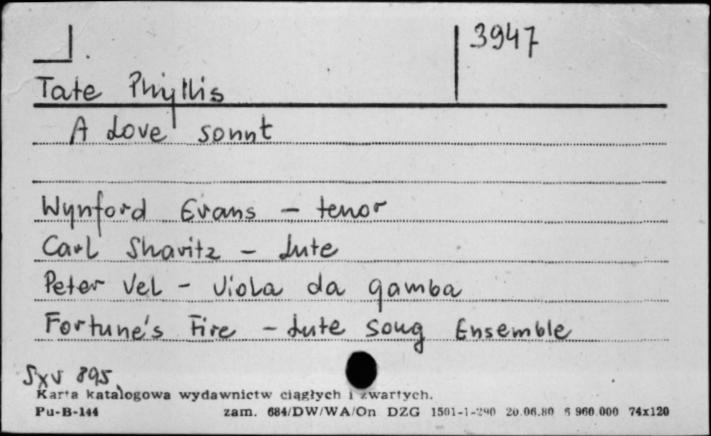 3947
Tate Phyllis
A Love sonnt
Wynford Evans – tenor
Carl Shavitz – Lute
Peter Vel – Viola da gamba
Fortune's Fire – Lute Song Ensemble
SXV 895
Karta katalogowa wydawnictw ciągłych i zwartych.
Pu-B-144 zam. 684/DW/WA/On DZG 1501-1-290 20.06.80 5 960.000 74x120